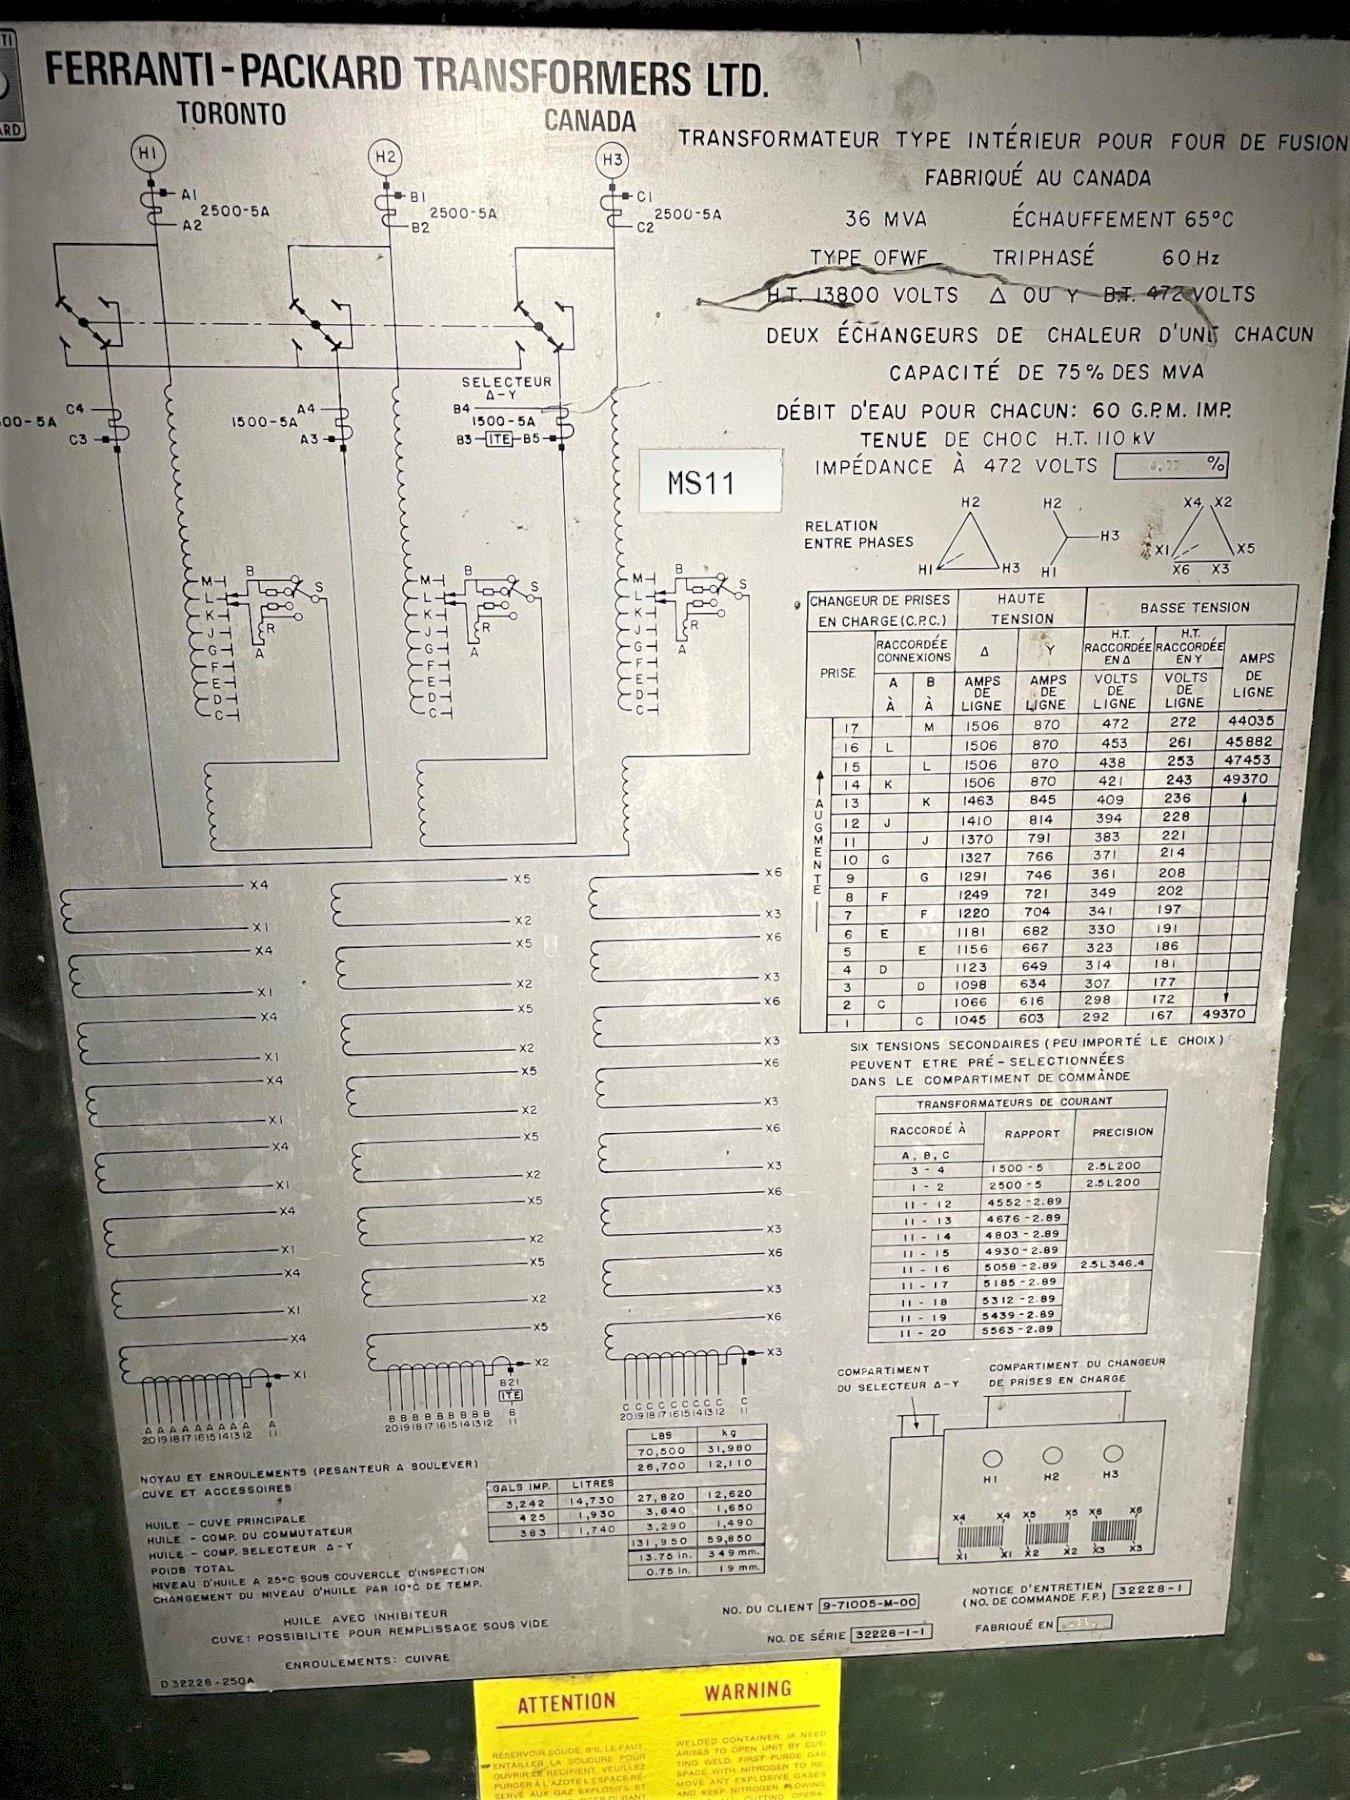 FERRANTI-PACKARD TRANSFORMERS LTD.
TORONTO CANADA
TRANSFORMATEUR TYPE INTÉRIEUR POUR FOUR DE FUSION
FABRIQUÉ AU CANADA
36 MVA ÉCHAUFFEMENT 65°C
TYPE OFWF TRIPHASÉ 60 Hz
H.T. 13800 VOLTS Δ OU Y B.T. 472 VOLTS
DEUX ÉCHANGEURS DE CHALEUR D'UNE CHACUN
CAPACITÉ DE 75% DES MVA
DÉBIT D'EAU POUR CHACUN: 60 G.P.M. IMP.
TENUE DE CHOC H.T. 110 kV
IMPÉDANCE À 472 VOLTS %
RELATION
ENTRE PHASES
H2 H1 H3
H2 H3 H1
X4 X2 X1 X5 X6 X3
H1 H2 H3
A1 2500-5A A2
B1 2500-5A B2
C1 2500-5A C2
SELECTEUR
Δ-Y
C4 00-5A C3
A4 1500-5A A3
B4 1500-5A B3 ITE B5
MS11
M L K J G F E D C B S R A
M L K J G F E D C B S R A
M L K J G F E D C B S R A
CHANGEUR DE PRISES EN CHARGE (C.P.C.) HAUTE TENSION BASSE TENSION
PRISE RACCORDÉE CONNEXIONS Δ Y H.T. RACCORDÉE EN Δ H.T. RACCORDÉE EN Y AMPS DE LIGNE
A À B À AMPS DE LIGNE AMPS DE LIGNE VOLTS DE LIGNE VOLTS DE LIGNE
17 M 1506 870 472 272 44035
16 L 1506 870 453 261 45882
15 L 1506 870 438 253 47453
14 K 1506 870 421 243 49370
13 K 1463 845 409 236
12 J 1410 814 394 228
11 J 1370 791 383 221
10 G 1327 766 371 214
9 G 1291 746 361 208
8 F 1249 721 349 202
7 F 1220 704 341 197
6 E 1181 682 330 191
5 E 1156 667 323 186
4 D 1123 649 314 181
3 D 1098 634 307 177
2 C 1066 616 298 172
1 C 1045 603 292 167 49370
AUGMENTE
SIX TENSIONS SECONDAIRES (PEU IMPORTÉ LE CHOIX)
PEUVENT ETRE PRÉ-SELECTIONNÉES
DANS LE COMPARTIMENT DE COMMANDE
TRANSFORMATEURS DE COURANT
RACCORDÉ À RAPPORT PRECISION
A, B, C
3 - 4 1500 - 5 2.5L200
1 - 2 2500 - 5 2.5L200
11 - 12 4552 - 2.89
11 - 13 4676 - 2.89
11 - 14 4803 - 2.89
11 - 15 4930 - 2.89
11 - 16 5058 - 2.89 2.5L346.4
11 - 17 5185 - 2.89
11 - 18 5312 - 2.89
11 - 19 5439 - 2.89
11 - 20 5563 - 2.89
X4 X5 X6
X1 X2 X3
X4 X5 X6
X1 X2 X3
X4 X5 X6
X1 X2 X3
X4 X5 X6
X1 X2 X3
X4 X5 X6
X1 X2 X3
X4 X5 X6
X1 X2 X3
X4 X5 X6
X1 X2 X3
X4 X5 X6
X1 X2 X3
B21
ITE
A A A A A A A A A A
20 19 18 17 16 15 14 13 12 11
B B B B B B B B B B
20 19 18 17 16 15 14 13 12 11
C C C C C C C C C C
20 19 18 17 16 15 14 13 12 11
COMPARTIMENT
DU SELECTEUR Δ-Y
COMPARTIMENT DU CHANGEUR
DE PRISES EN CHARGE
H1 H2 H3
X4 X4 X5 X5 X6 X6
X1 X1 X2 X2 X3 X3
LBS kg
NOYAU ET ENROULEMENTS (PESANTEUR A SOULEVER) 70,500 31,980
CUVE ET ACCESSOIRES 26,700 12,110
GALS IMP. LITRES
HUILE - CUVE PRINCIPALE 3,242 14,730 27,820 12,620
HUILE - COMP. DU COMMUTATEUR 425 1,930 3,640 1,650
HUILE - COMP. SELECTEUR Δ-Y 383 1,740 3,290 1,490
POIDS TOTAL 131,950 59,850
NIVEAU D'HUILE A 25°C SOUS COUVERCLE D'INSPECTION 13.75 in. 349 mm.
CHANGEMENT DU NIVEAU D'HUILE PAR 10°C DE TEMP. 0.75 in. 19 mm.
HUILE AVEC INHIBITEUR
CUVE: POSSIBILITE POUR REMPLISSAGE SOUS VIDE
ENROULEMENTS: CUIVRE
D 32228-250A
NO. DU CLIENT 9-71005-M-00
NO. DE SÉRIE 32228-1-1
NOTICE D'ENTRETIEN
(NO. DE COMMANDE F.P.) 32228-1
FABRIQUÉ EN
ATTENTION
RÉSERVOIR SOUDÉ. S'IL LE FAUT
ENTAILLER LA SOUDURE POUR
OUVRIR LE RECIPIENT, VEUILLEZ
PURGER À L'AZOTE L'ESPACE RÉ-
SERVÉ AUX GAZ EXPLOSIFS ET
WARNING
WELDED CONTAINER. IF NEED
ARISES TO OPEN UNIT BY CUT-
TING WELD, FIRST PURGE GAS
SPACE WITH NITROGEN TO RE-
MOVE ANY EXPLOSIVE GASES
AND KEEP NITROGEN FLOWING
CUTTING OPERA-